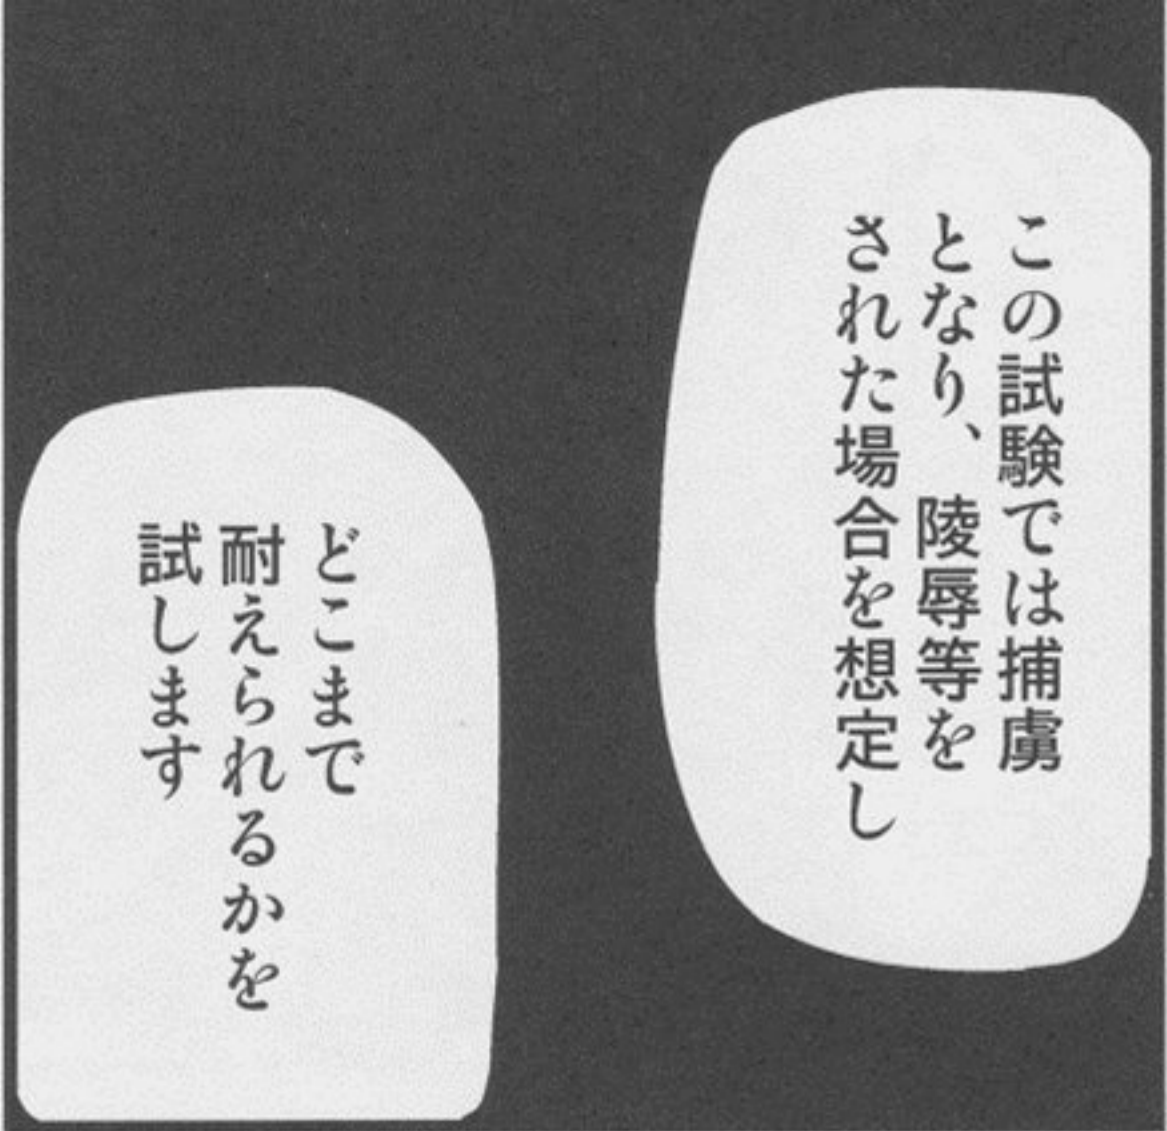 この試験では捕虜
となり、陵辱等を
された場合を想定し
どこまで
耐えられるかを
試します